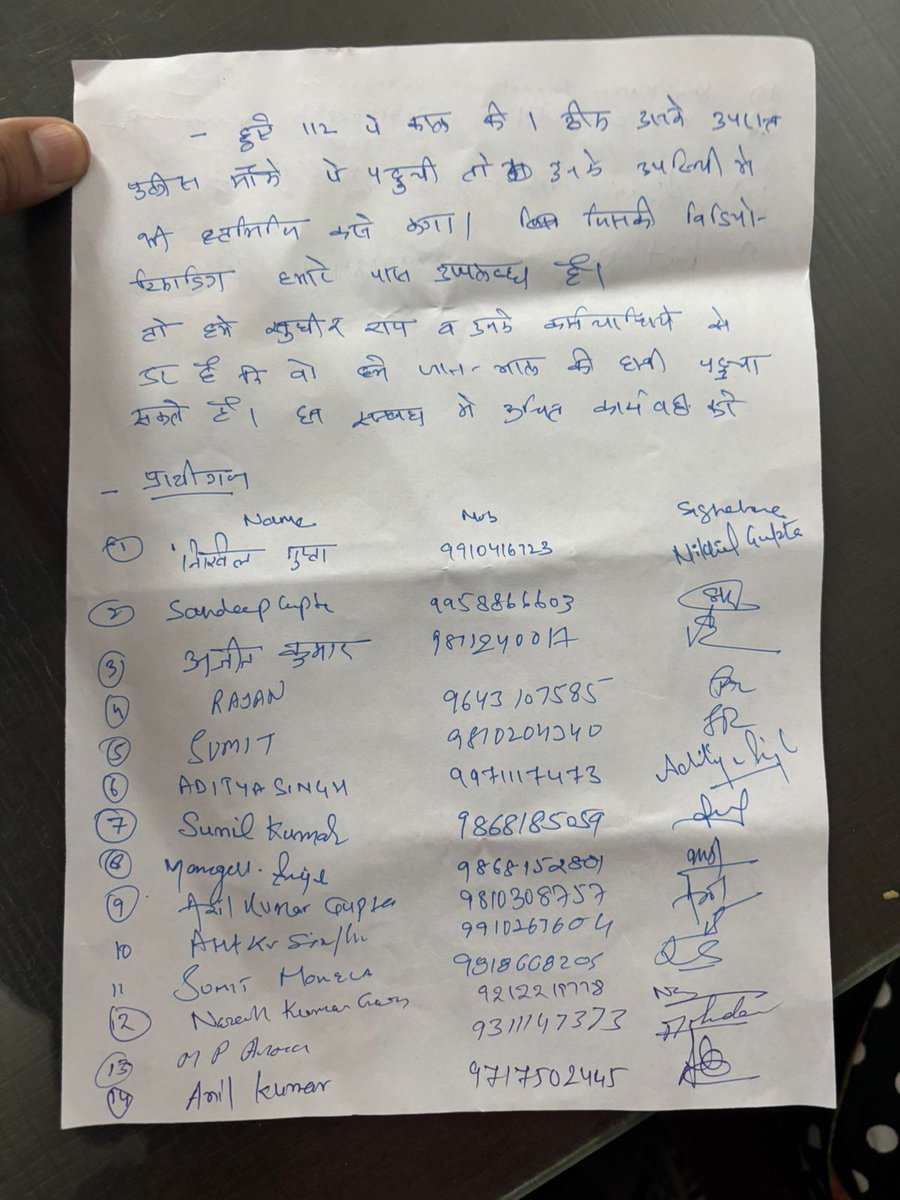 - हुऐ 112 पे काल की । ठीक उनके उपरान्त
पुलीस मौके पे पहुची तो उनके उपस्थिती मे
भी करने लगा। जिसकी विडियो-
रिकार्डिंग हमारे पास उपलब्ध है।
तो हमे सुधीर राय व उनके कर्मचारियो से
डर है कि वो हमे जान-माल की हानी पहुचा
सकते है। इस सम्बध मे उचित कार्यवाही करे
- प्रार्थीगण
Name Mob Signature
1) निखिल गुप्ता 9910416723 Nikhil Gupta
2 Sandeep Gupta 9958866603
3) अजीत कुमार 9871240017
4 RAJAN 9643107585
5 SUMIT 9810204340
6 ADITYA SINGH 9971117473 Aditya Singh
7 Sunil Kumar 9868185059
8 9868152801
9 Anil Kumar Gupta 9810308757
10 9910267604
11 SUMIT 9818668205
12 Naresh Kumar Garg 9212219778
13 M P Arora 9311147373
14 Anil Kumar 9717502445